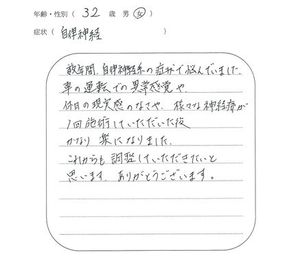 年齢・性別( 32 歳 男 女 )
症状( 自律神経 )
数年間、自律神経系の症状で悩んでいました。
車の運転での異常感覚や
休日の現実感のなさや、様々な神経痛が
1回施術していただいた後
かなり楽になりました。
これからも調整していただきたいと
思います。ありがとうございます。